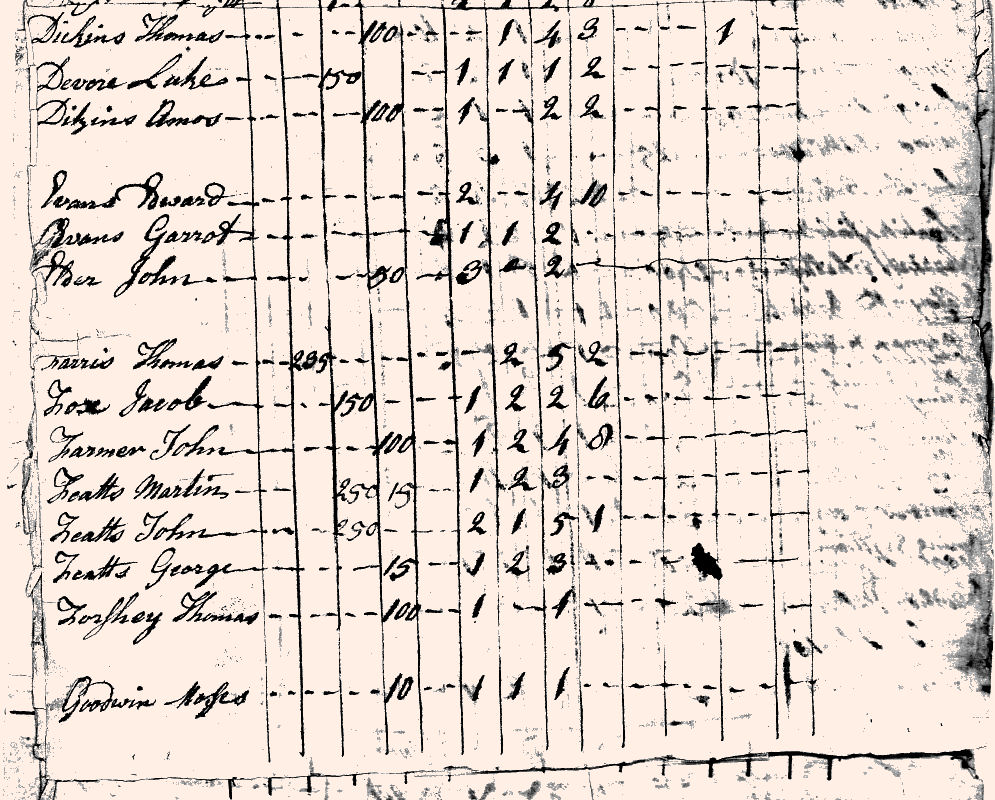 Dickins Thomas 100 1 4 3 1
Devore Luke 150 1 1 1 2
Dikins Amos 100 1 2 2
Evans Edward 2 4 10
Evans Garrot 1 1 2
John 3 2
Farris Thomas 235 2 5 2
Fox Jacob 150 1 2 2 6
Farmer John 100 1 2 4 8
Featts Martin 250 15 1 2 3
Featts John 250 2 1 5 1
Featts George 15 1 2 3
Forshey Thomas 100 1 1
Goodwin Moses 10 1 1 1